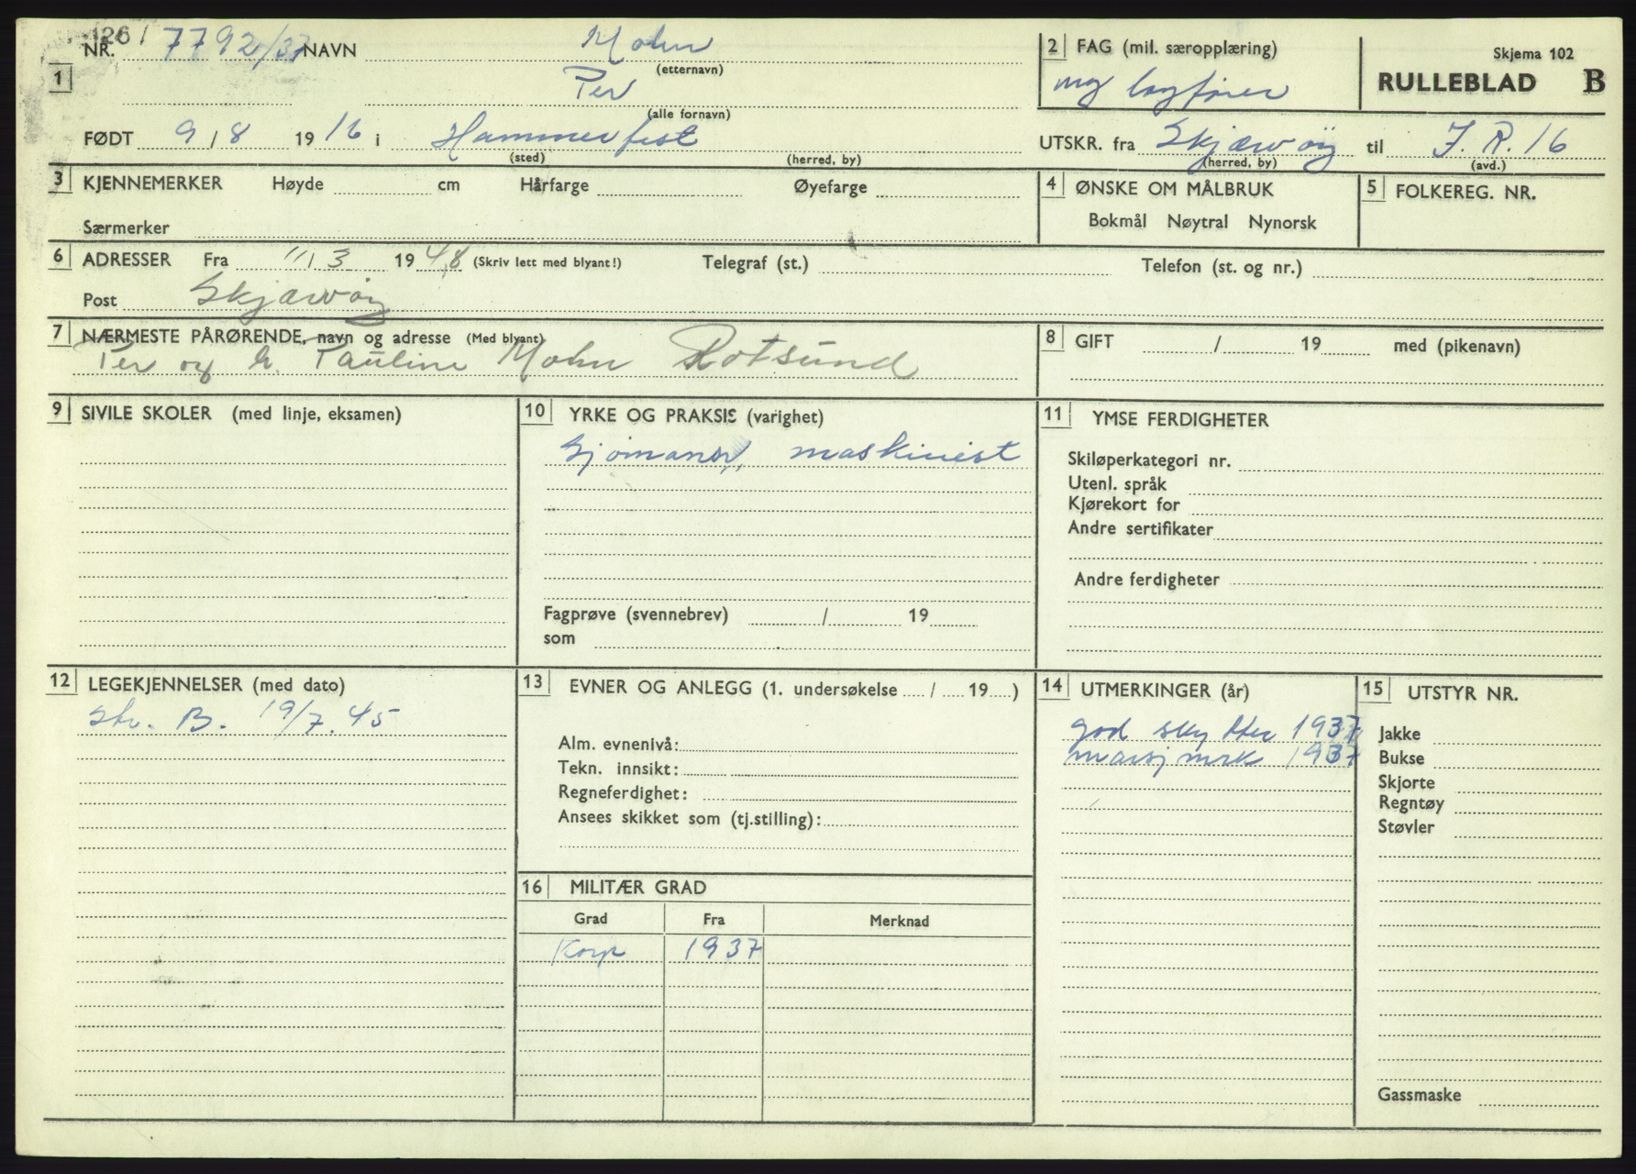 126 / 7792/37
NR. NAVN Mohn
(etternavn)
1 Per
(alle fornavn)
FØDT 9 / 8 1916 i Hammerfest
(sted) (herred, by)
2 FAG (mil. særopplæring)
mg lagfører
Skjema 102
RULLEBLAD B
UTSKR. fra Skjærvøy til I.R. 16
(herred, by) (avd.)
3 KJENNEMERKER Høyde cm Hårfarge Øyefarge
Særmerker
4 ØNSKE OM MÅLBRUK
Bokmål Nøytral Nynorsk
5 FOLKEREG. NR.
6 ADRESSER Fra 11/3 1948 (Skriv lett med blyant!) Telegraf (st.) Telefon (st. og nr.)
Post Skjærvøy
7 NÆRMESTE PÅRØRENDE, navn og adresse (Med blyant)
Per og h. Pauline Mohn Rotsund
8 GIFT / 19 med (pikenavn)
9 SIVILE SKOLER (med linje, eksamen)
10 YRKE OG PRAKSIS (varighet)
Sjømann, maskinist
Fagprøve (svennebrev) / 19
som
11 YMSE FERDIGHETER
Skiløperkategori nr.
Utenl. språk
Kjørekort for
Andre sertifikater
Andre ferdigheter
12 LEGEKJENNELSER (med dato)
Str. B. 19/7. 45
13 EVNER OG ANLEGG (1. undersøkelse / 19 )
Alm. evnenivå:
Tekn. innsikt:
Regneferdighet:
Ansees skikket som (tj.stilling):
14 UTMERKINGER (år)
god skytter 1937
marsj mrk 1937
15 UTSTYR NR.
Jakke
Bukse
Skjorte
Regntøy
Støvler
Gassmaske
16 MILITÆR GRAD
Grad Fra Merknad
Korp 1937